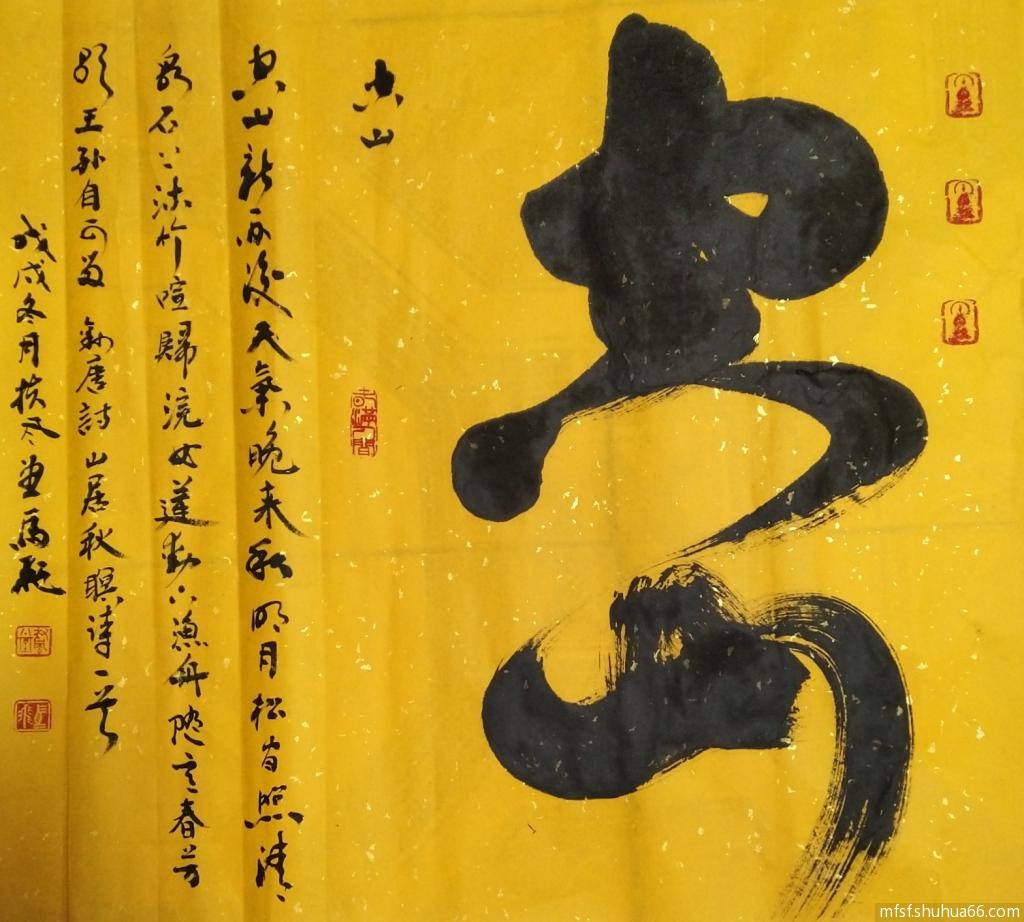 空山
空山
空山新雨後天氣晚来秋明月松間照清
泉石上流竹喧歸浣女蓮動下漁舟随意春芳
歇王孫自可留 唐詩山居秋暝詩一首
戊戌冬月
mfsf.shuhua66.com